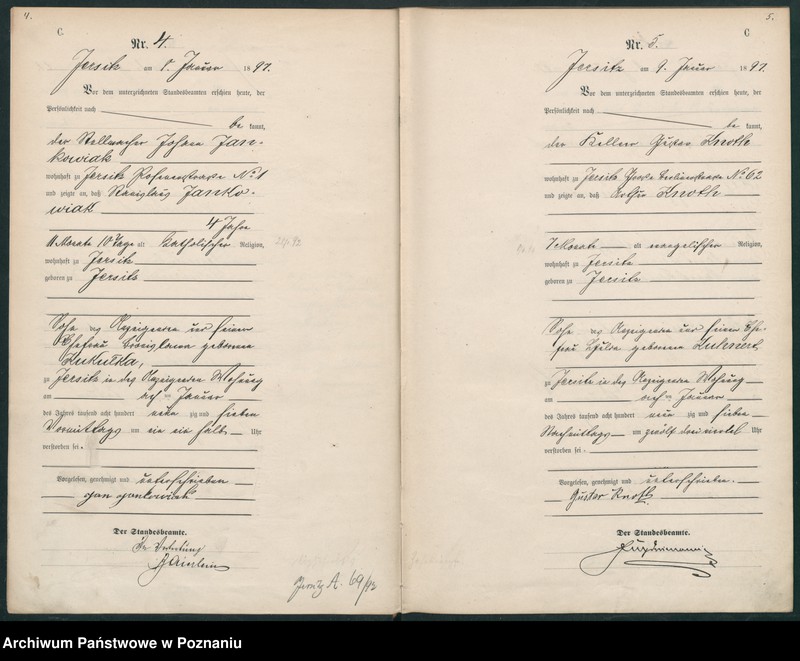 4.
C.
Nr. 4.
Jersitz am 8. Januar 1897.
Vor dem unterzeichneten Standesbeamten erschien heute, der
Persönlichkeit nach
be kannt,
der Stellmacher Johann Jan-
kowiak
wohnhaft zu Jersitz No 1
und zeigte an, daß Stanislaus Janko-
wiak
4 Jahre
11 Monate 10 Tage alt katholischer Religion,
wohnhaft zu Jersitz
geboren zu Jersitz
Sohn des Anzeigenden und seiner
Ehefrau geborenen
Kukulka,
zu Jersitz in des Anzeigenden Wohnung
am Januar
des Jahres tausend acht hundert neun zig und sieben
Vormittags um ein ein halb Uhr
verstorben sei.
Vorgelesen, genehmigt und unterschrieben
Jan Jankowiak
Der Standesbeamte.
In Vertretung
Jersitz A. 69/92
5.
C
Nr. 5.
Jersitz am 9. Januar 1897.
Vor dem unterzeichneten Standesbeamten erschien heute, der
Persönlichkeit nach
be kannt,
der Kellner Gustav Knoth
wohnhaft zu Jersitz Große Berlinerstraße No 62
und zeigte an, daß Arthur Knoth
7 Monate alt evangelischer Religion,
wohnhaft zu Jersitz
geboren zu Jersitz
Sohn des Anzeigenden und seiner Ehe-
frau geborenen
zu Jersitz in des Anzeigenden Wohnung
am Januar
des Jahres tausend acht hundert neun zig und sieben
Nachmittags um zwölf dreiviertel Uhr
verstorben sei.
Vorgelesen, genehmigt und unterschrieben.
Gustav Knoth
Der Standesbeamte.
Archiwum Państwowe w Poznaniu